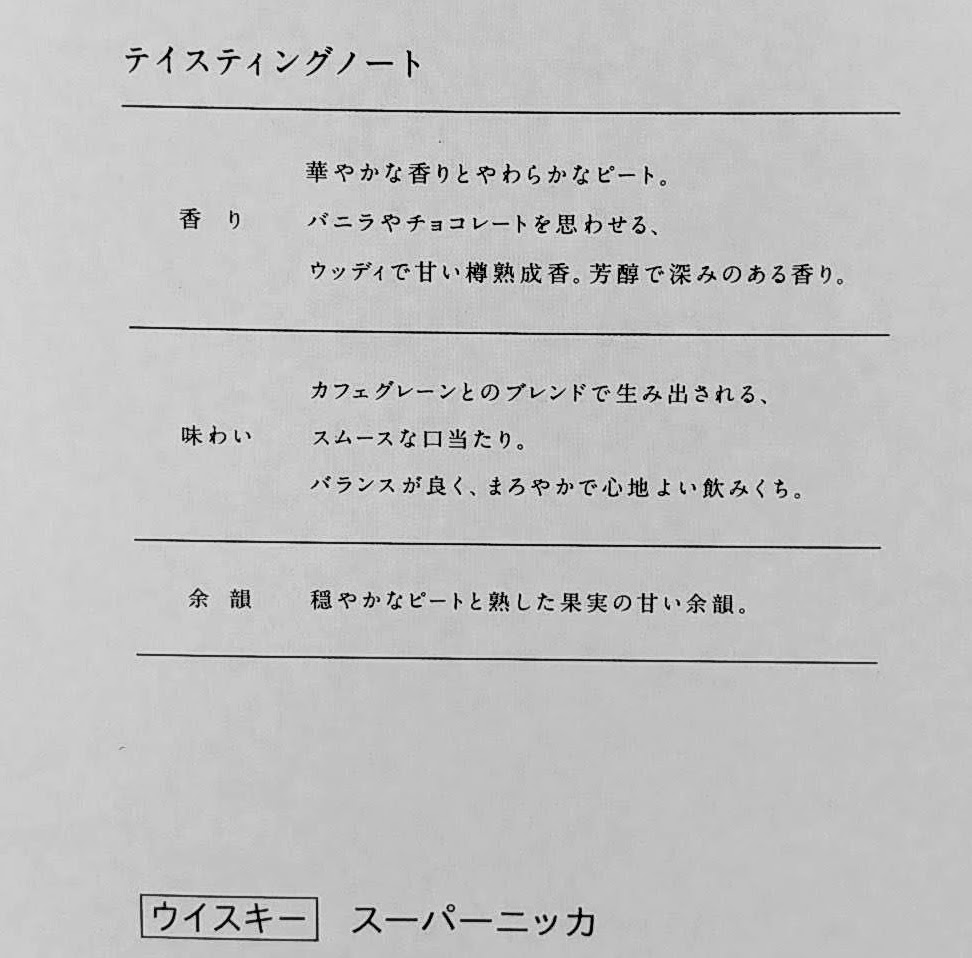 テイスティングノート
香り
華やかな香りとやわらかなピート。
バニラやチョコレートを思わせる、
ウッディで甘い樽熟成香。芳醇で深みのある香り。
味わい
カフェグレーンとのブレンドで生み出される、
スムースな口当たり。
バランスが良く、まろやかで心地よい飲みくち。
余韻
穏やかなピートと熟した果実の甘い余韻。
ウイスキー スーパーニッカ